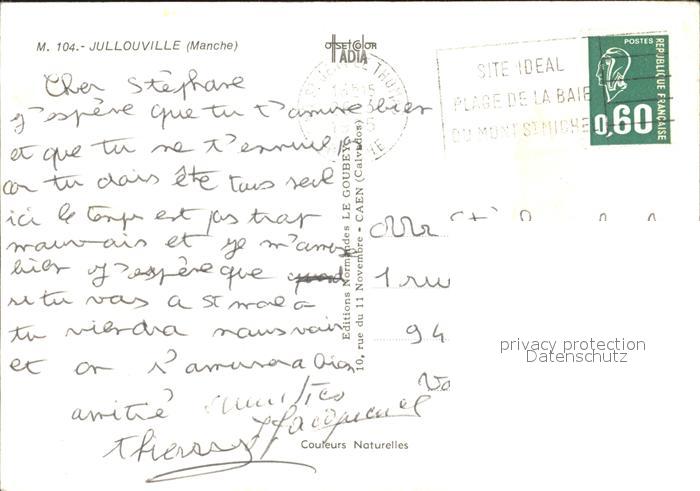 M. 104.- JULLOUVILLE (Manche)
OFFSET COLOR
IADIA
SITE IDEAL
PLAGE DE LA BAIE
DU MONT ST MICHEL
POSTES
REPUBLIQUE FRANÇAISE
0,60
Cher Stéphane
j'espère que tu t'amuse bien
et que tu ne t'ennuie pas
car tu dois être tous seul
ici le temps est pas trop
mauvais et je m'amuse
bien j'espère que
si tu vas a St malo
tu viendra nous voir
et on s'amusera bien
amitié
Thierry
Jacqueline
Editions Normandes LE GOUBEY
10, rue du 11 Novembre - CAEN (Calvados)
Mr
1 rue
94
Couleurs Naturelles
privacy protection
Datenschutz